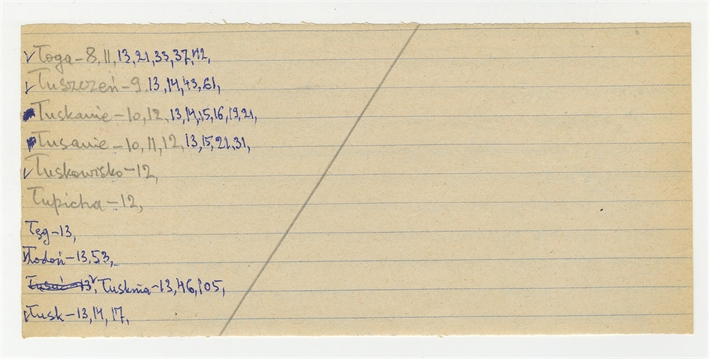 Łoga-8,11,13,21,33,37,42,
Łuszczeń-9,13,14,43,61,
Łuskanie-10,12,13,14,15,16,19,21,
Łusanie-10,11,12,13,15,21,31,
Łuskowisko-12,
Łupicha-12,
Łęg-13,
Łodoń-13,53,
Łusknia-13,46,105,
Łusk-13,14,17,